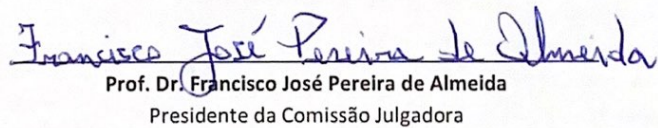 Francisco José Pereira de Almeida
Prof. Dr. Francisco José Pereira de Almeida
Presidente da Comissão Julgadora